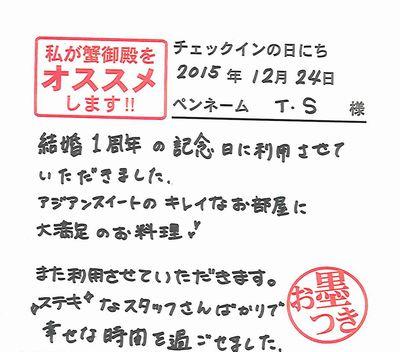 私が蟹御殿を
オススメ
します!!
チェックインの日にち
2015 年 12月 24日
ペンネーム T・S 様
結婚1周年の記念日に利用させて
いただきました.
アジアンスイートのキレイなお部屋に
大満足のお料理!
また利用させていただきます。
"ステキ"なスタッフさんばかりで
幸せな時間を過ごせました.
お墨つき